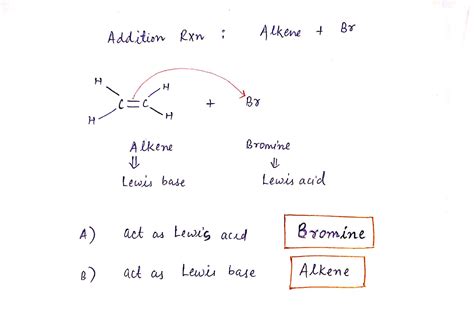 Addition Rxn : Alkene + Br
H H
C=C + Br
H H
Alkene Bromine
⇓ ⇓
Lewis base Lewis acid
A) act as Lewis acid Bromine
B) act as Lewis base Alkene